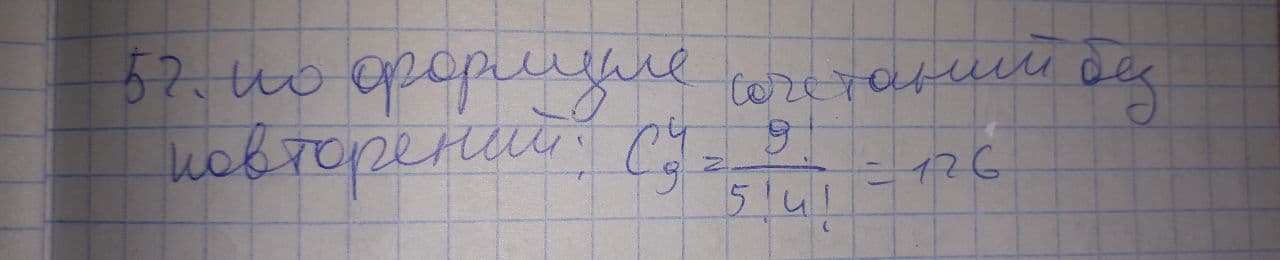 52. по формуле сочетаний без
повторений: C₉⁴ = 9!/5!4! = 126